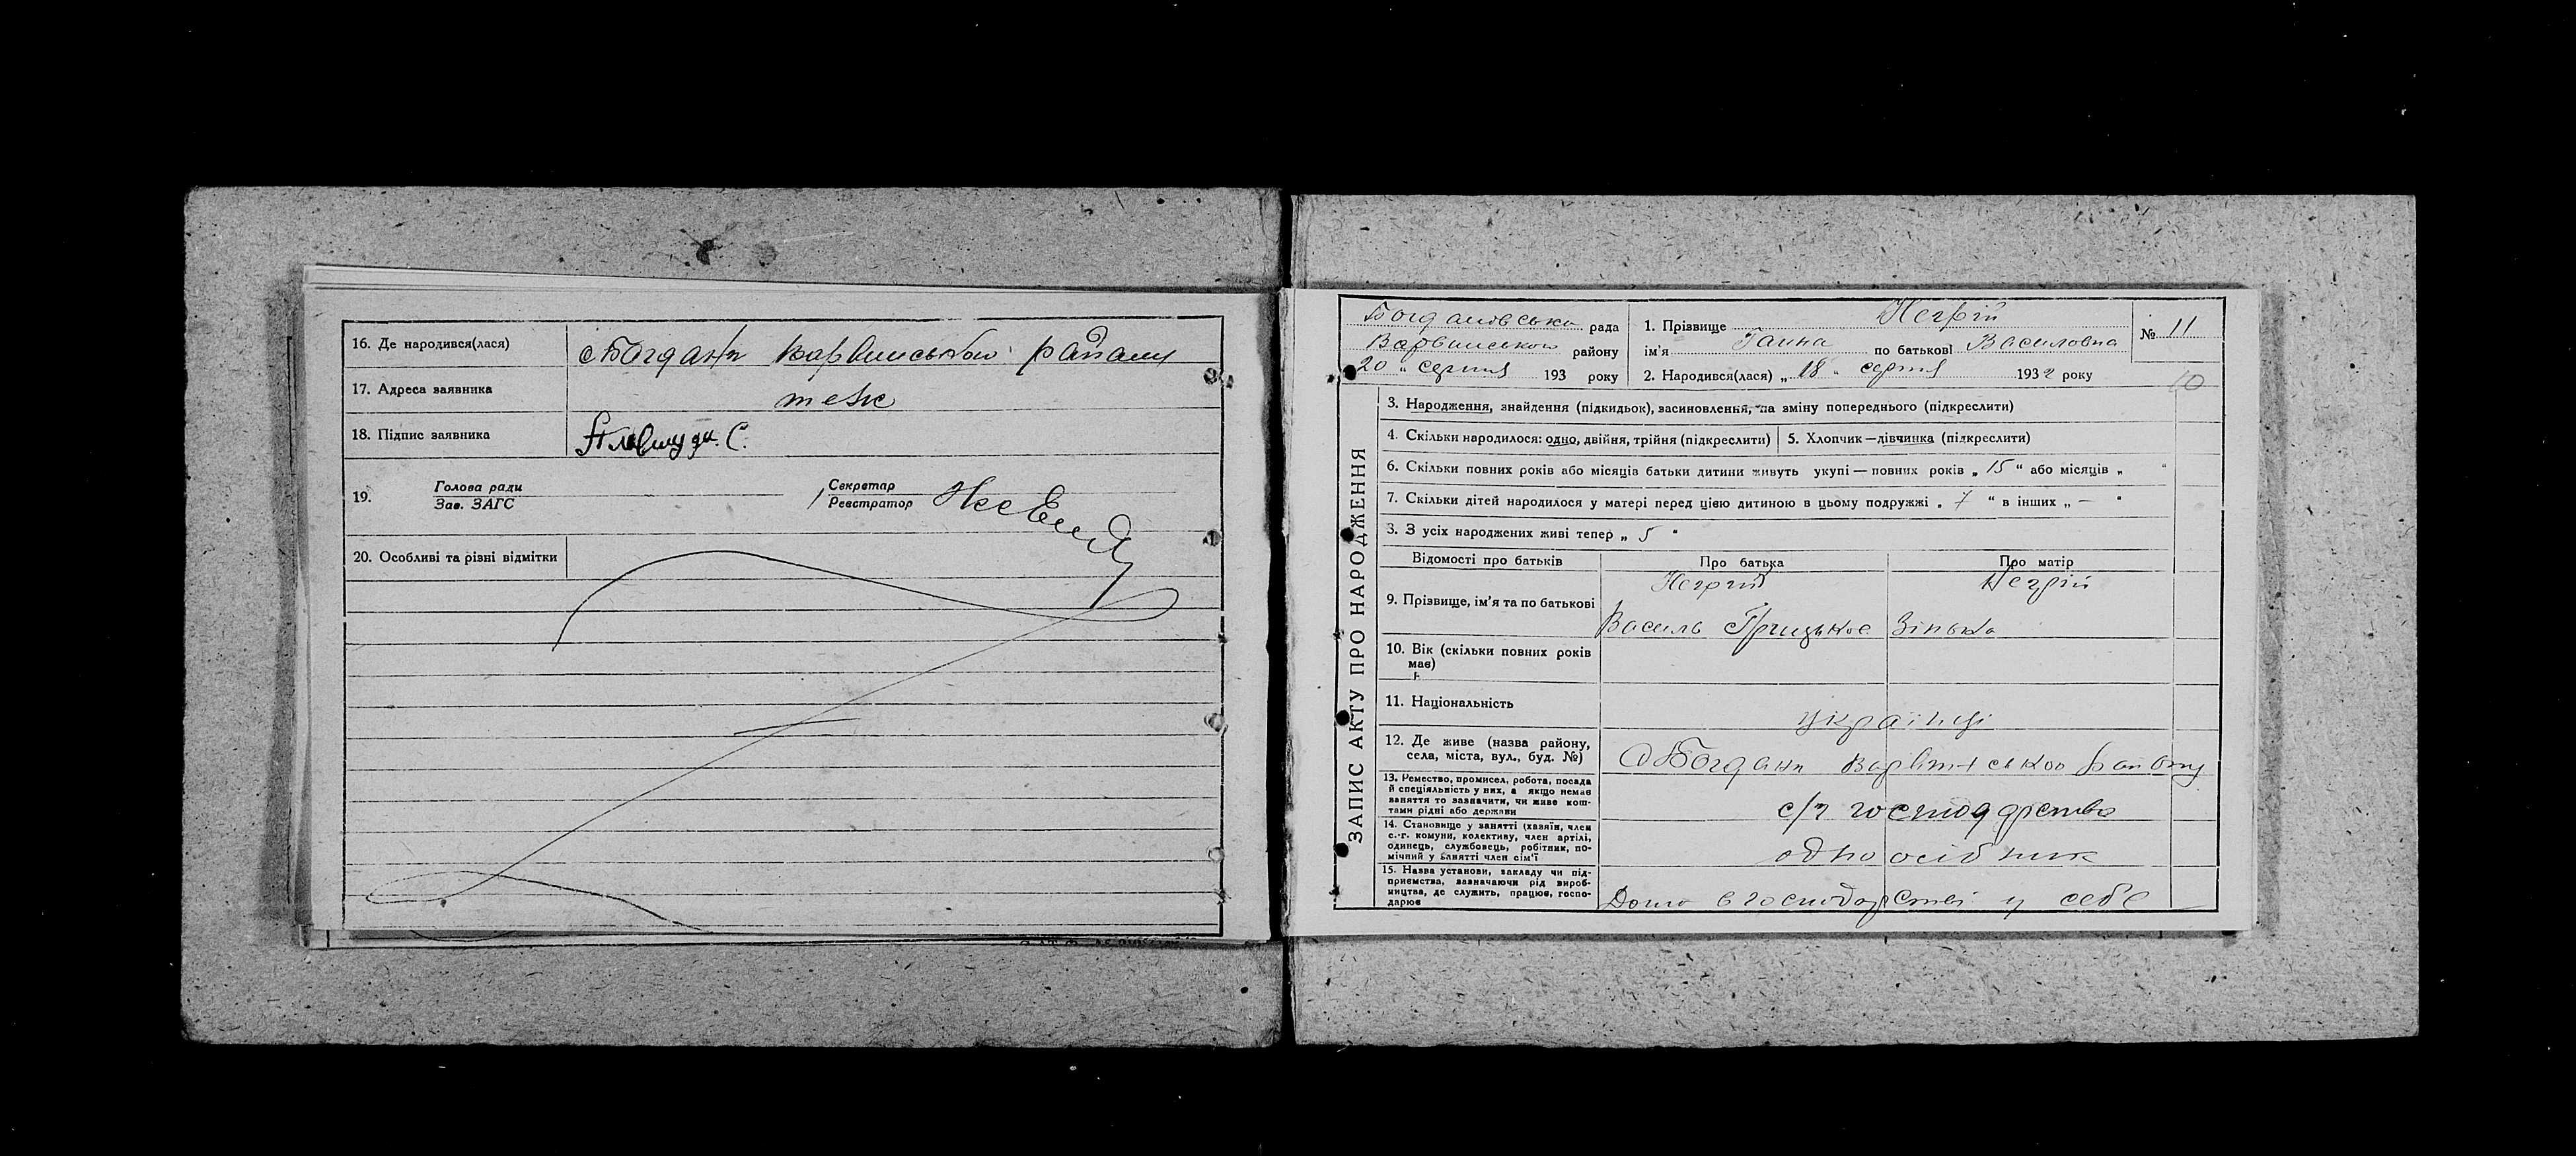 16. Де народився(лася)
с Богдани Варвинського району
17. Адреса заявника
теж
18. Підпис заявника
С.
19. Голова ради
Зав. ЗАГС
Секретар
Реєстратор
20. Особливі та різні відмітки
ЗАПИС АКТУ ПРО НАРОДЖЕННЯ
Богдановська рада
Варвинського району
20 " серпня 193 року
1. Прізвище Негрій
ім'я Ганна по батькові Василовна
2. Народився(лася) „ 18 " серпня 1932 року
№ 11
10
3. Народження, знайдення (підкидьок), засиновлення, на зміну попереднього (підкреслити)
4. Скільки народилося: одно, двійня, трійня (підкреслити)
5. Хлопчик—дівчинка (підкреслити)
6. Скільки повних років або місяців батьки дитини живуть укупі — повних років „ 15 " або місяців „ "
7. Скільки дітей народилося у матері перед цією дитиною в цьому подружжі „ 7 " в інших „ — "
3. З усіх народжених живі тепер „ 5 "
Відомості про батьків
Про батька
Про матір
9. Прізвище, ім'я та по батькові
Негрий
Василь Грицьков
Негрій
Зінька
10. Вік (скільки повних років має)
11. Національність
українці
12. Де живе (назва району,
села, міста, вул., буд. №)
с Богдани Варвинського району
13. Ремество, промисел, робота, посада
й спеціяльність у них, а якщо немає
заняття то зазначити, чи живе кош-
тами рідні або держави
с/г господарство
14. Становище у занятті (хазяїн, член
с.-г. комуни, колективу, член артілі,
одинець, службовець, робітник, по-
мічний у занятті член сім'ї
одноосібник
15. Назва установи, закладу чи під-
приємства, зазначаючи рід вироб-
ництва, де служить, працює, госпо-
дарює
Дома в господарстві у себе